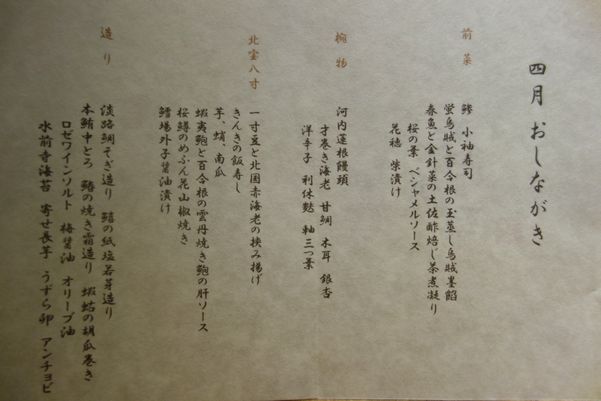 四月 おしながき
前菜
鯵 小袖寿司
蛍烏賊と百合根の玉蒸し烏賊墨餡
春魚と金針菜の土佐酢焙じ茶煮凝り
桜の葉 ベシャメルソース
花穂 柴漬け
椀物
河内蓮根饅頭
才巻き海老 甘鯛 木耳 銀杏
洋辛子 利休麩 軸三つ葉
北宝八寸
一寸豆と北国赤海老の挟み揚げ
きんきの飯寿し
芋、蛸、南瓜
蝦夷鮑と百合根の雲丹焼き鮑の肝ソース
桜鱒のめふん花山椒焼き
鱈場外子醤油漬け
造り
淡路鯛そぎ造り 鱚の紙塩若芽造り
本鮪中とろ 鰆の焼き霜造り 蝦蛄の胡瓜巻き
ロゼワインソルト 梅醤油 オリーブ油
水前寺海苔 寄せ長芋 うずら卵 アンチョビ